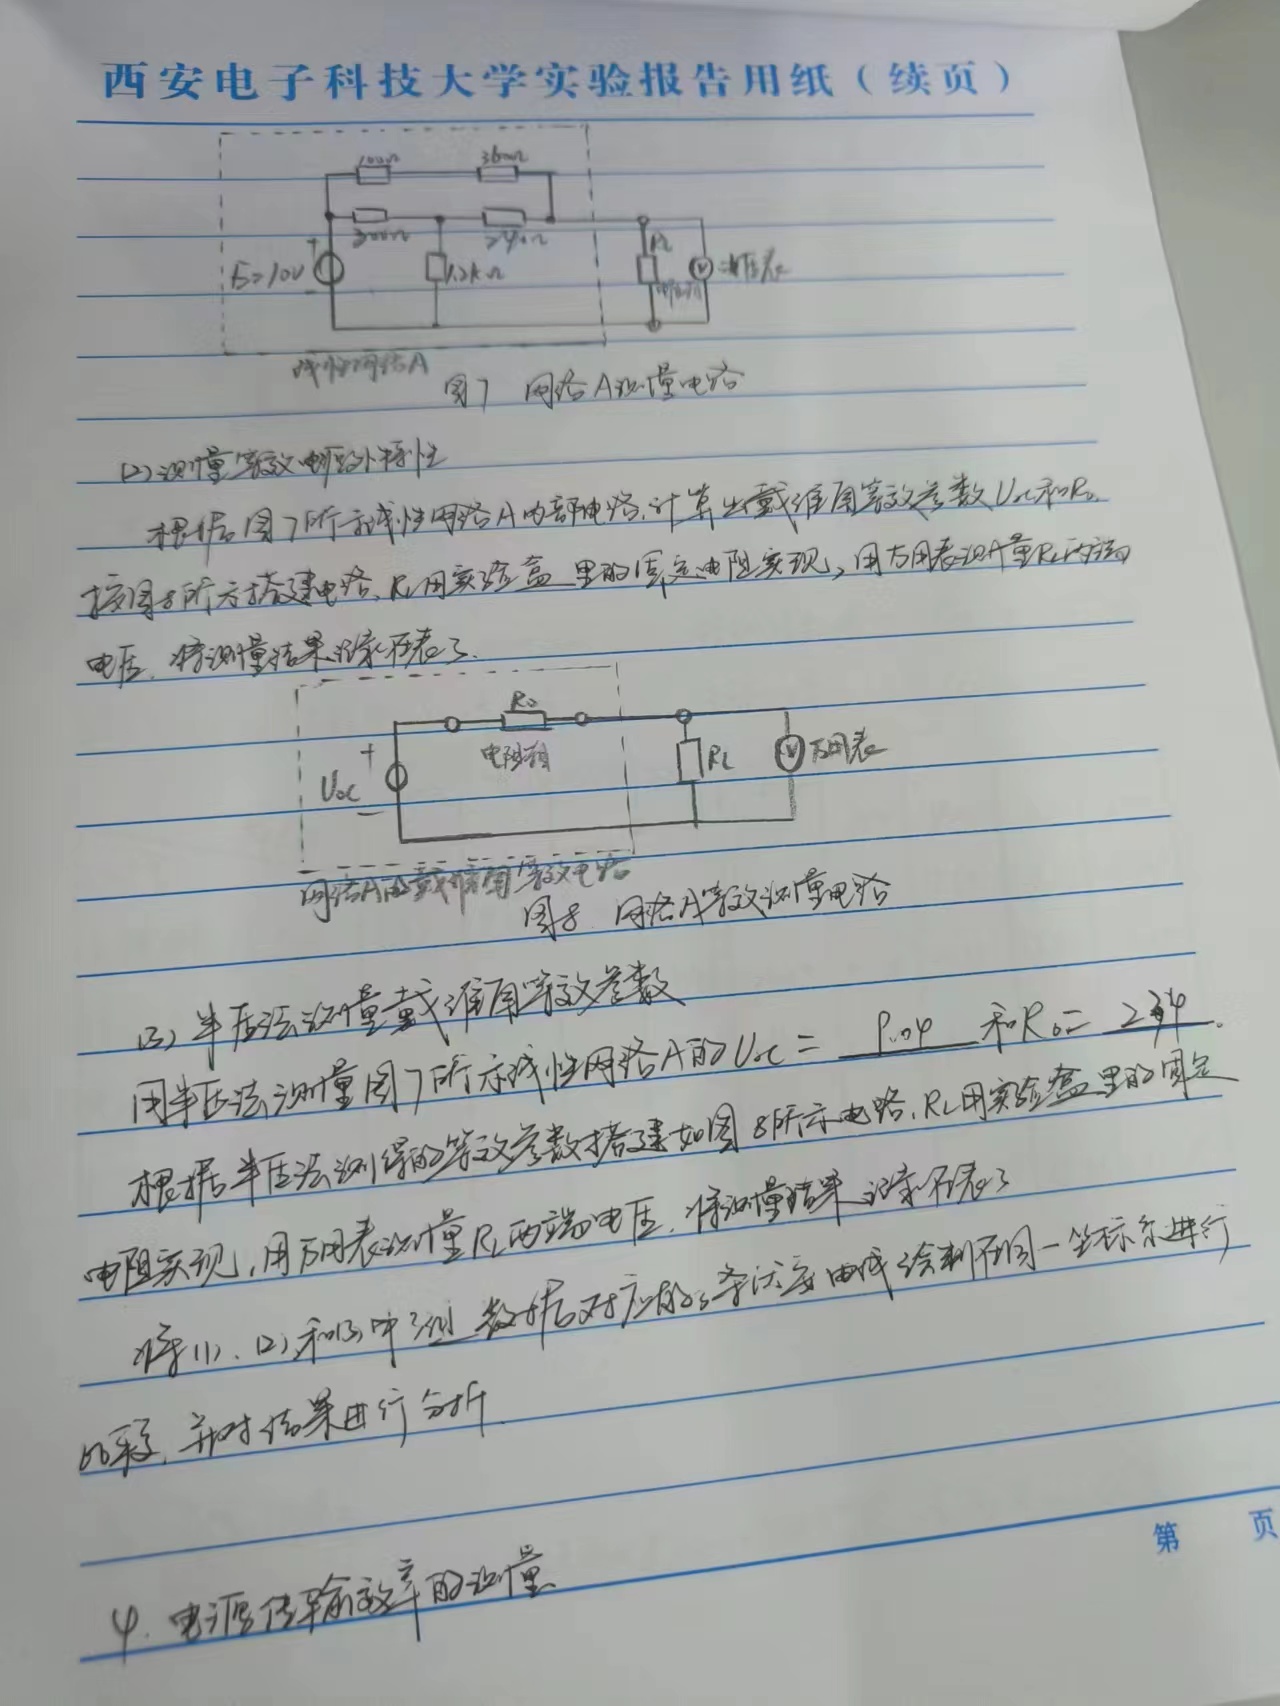 西安电子科技大学实验报告用纸（续页）
100Ω 360Ω
300Ω 240Ω
E=10V 1.2kΩ RL V
线性网络A
图7 网络A测量电路
(2) 测量等效电路外特性
根据图7所示线性网络A内部电路,计算出戴维南等效参数Uoc和R0.
按图8所示搭建电路,RL用实验盒里的固定电阻实现,用万用表测量RL两端
电压,将测量结果记录在表3.
R0
电阻箱
Uoc RL V 万用表
网络A的戴维南等效电路
图8. 网络A等效测量电路
(3) 半压法测量戴维南等效参数
用半压法测量图7所示线性网络A的Uoc = 9.04 和R0= 234.
根据半压法测得的等效参数搭建如图8所示电路,RL用实验盒里的固定
电阻实现,用万用表测量RL两端电压,将测量结果记录在表3
将(1)、(2)和(3)中 数据对应的3条伏安曲线绘制在同一坐标系进行
比较,并对结果进行分析.
第 页
4. 电源传输效率的测量